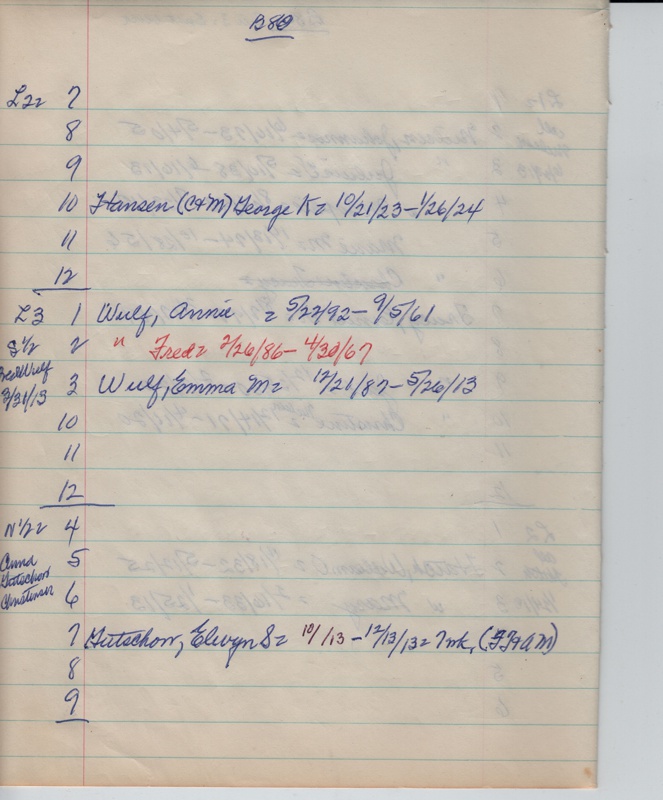 B80
L22 7
8
9
10 Hansen (C+M) George K = 10/21/23 – 1/26/24
11
12
L3 1 Wulf, Annie = 5/22/92 – 9/5/61
S 1/2 2 " Fred = 2/26/86 – 4/30/67
Fred Wulf
3/31/13 3 Wulf, Emma M = 12/21/87 – 5/26/13
10
11
12
N 1/2 4
Anna 5
Gutschow
Christensen 6
7 Gutschow, Elwyn S = 10/ /13 – 12/13/13 = 7 mk, (F+AM)
8
9